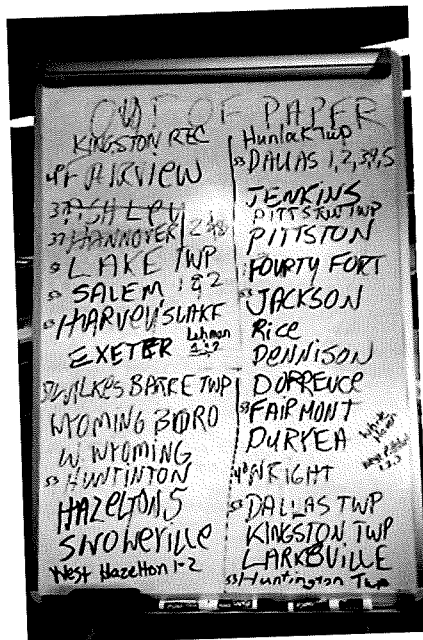 OUT OF PAPER
KINGSTON REC
FAIRVIEW
37 ASHLEY
37 HANNOVER
LAKE TWP
53 SALEM 1 & 2
53 HARVEY'S LAKE
EXETER Lehman
WILKES BARRE TWP
WYOMING BORO
W WYOMING
53 HUNTINTON
HAZELTON 5
SNOWERVILLE
West Hazelton 1-2
Hunlock Twp
53 DALLAS 1, 2, 3, 4, 5
JENKINS
PITTSTON TWP
PITTSTON
FOURTY FORT
JACKSON
Rice
DENNISON
DORRENCE
53 FAIRMONT
DURYEA
WRIGHT
53 DALLAS TWP
KINGSTON TWP
LARKSVILLE
53 Huntington Twp